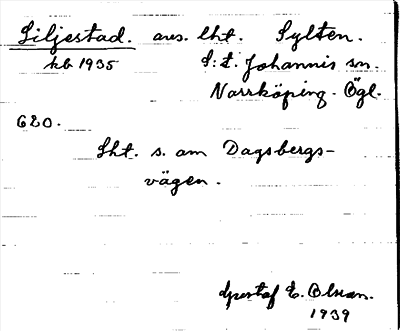 Liljestad. avs. lht. Sylten.
kb 1935 S:t Johannis sn.
Norrköping. Ögl.
620.
Lht. s. om Dagsbergs-
vägen.
Gustaf E. Olson.
1939